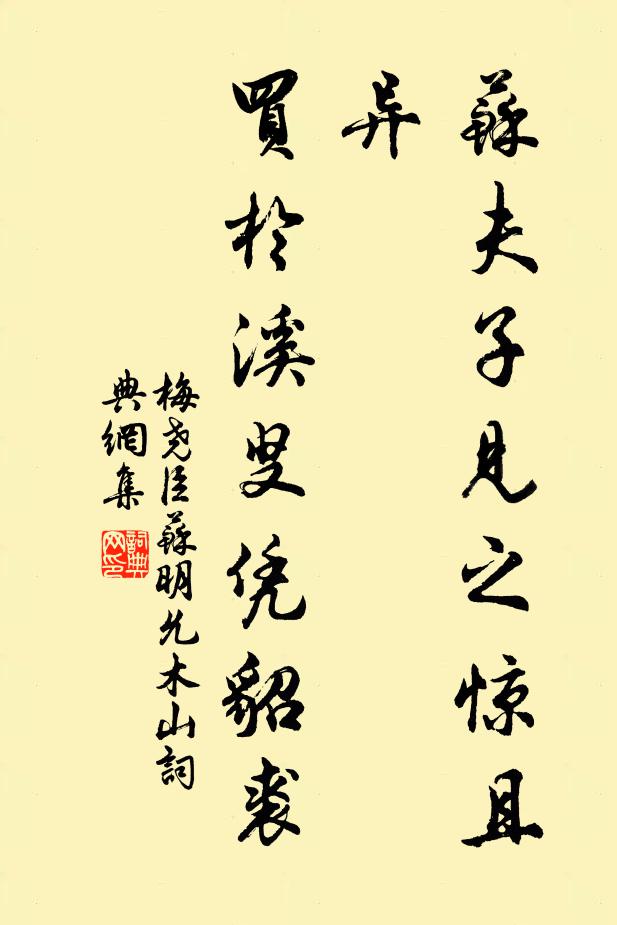 蘇夫子見之惊且
异
買於溪叟凭貂裘
梅尧臣蘇明允木山詞
典網集
詞典
网印